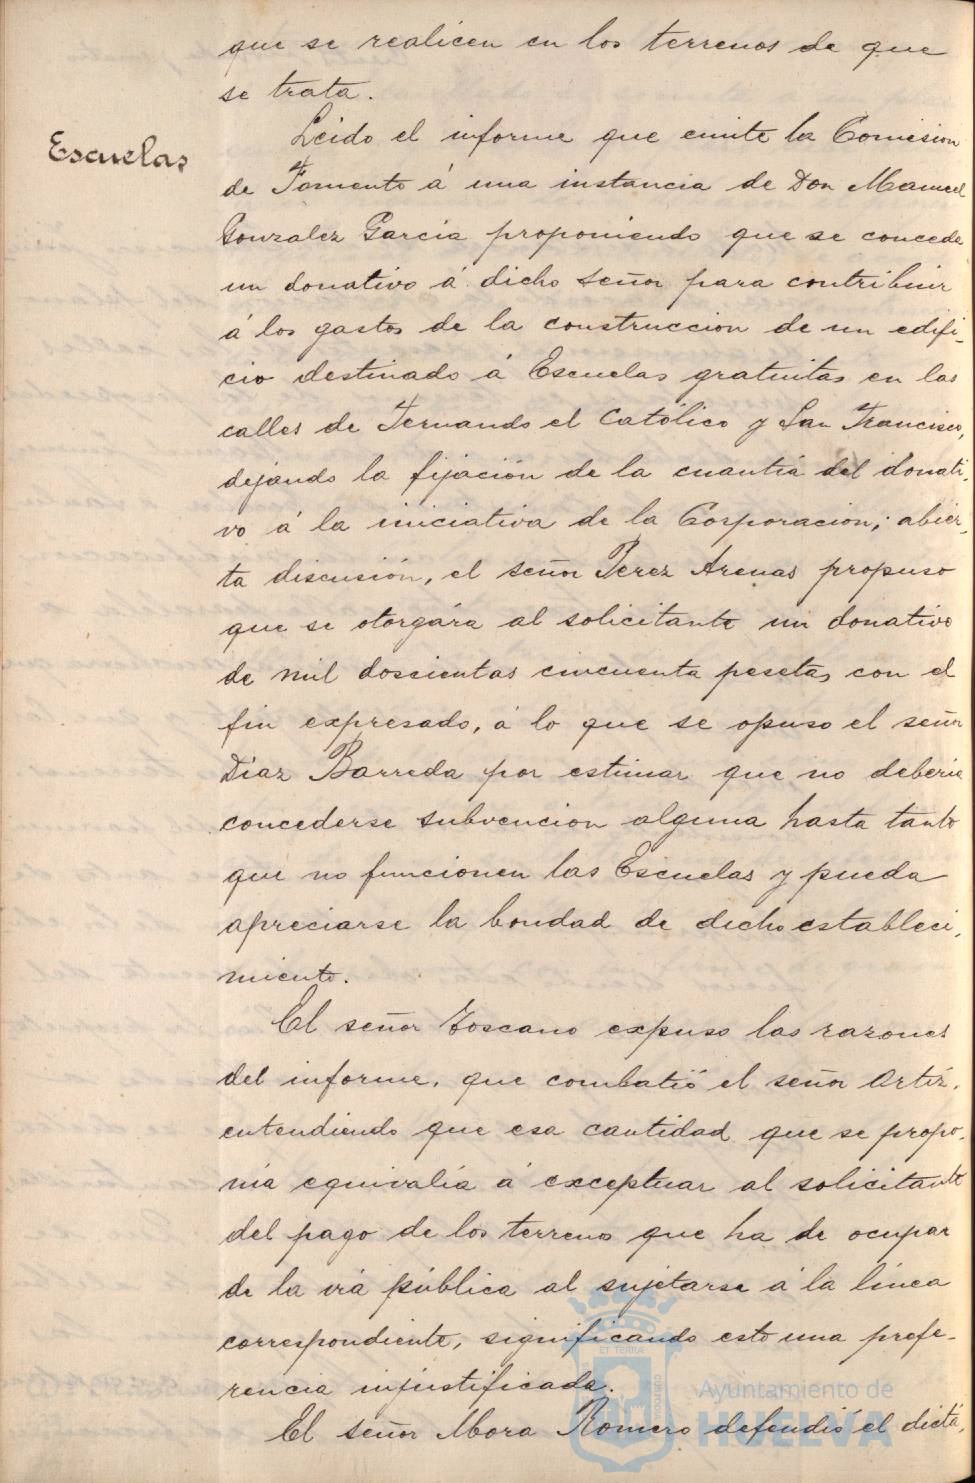 que se realicen en los terrenos de que
se trata.
Escuelas
Leido el informe que emite la Comision
de Fomento á una instancia de Don Manuel
Gonzalez Garcia proponiendo que se conceda
un donativo á dicho señor para contribuir
á los gastos de la construccion de un edifi-
cio destinado á Escuelas gratuitas en las
calles de Fernando el Católico y San Francisco,
dejando la fijación de la cuantía del donati-
vo á la iniciativa de la Corporacion; abier-
ta discusión, el señor Perez Arenas propuso
que se otorgára al solicitante un donativo
de mil doscientas cincuenta pesetas con el
fin expresado, á lo que se opuso el señor
Diaz Barreda por estimar que no deberia
concederse subvencion alguna hasta tanto
que no funcionen las Escuelas y pueda
apreciarse la bondad de dicho estableci-
miento.
El señor Toscano expuso las razones
del informe, que combatió el señor Ortiz,
entendiendo que esa cantidad que se propo-
nia equivalía á exceptuar al solicitante
del pago de los terrenos que ha de ocupar
de la viá pública al sujetarse á la línea
correspondiente, significando esto una prefe-
rencia injustificada.
El señor Mora Romero defendió el dictá-
ET TERRÆ
CUSTODIA
Ayuntamiento de
HUELVA